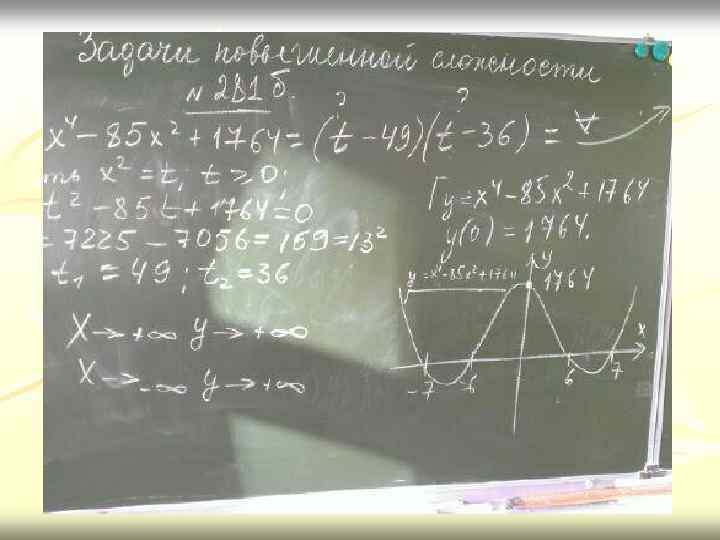 Задачи повышенной сложности
№ 281 б.
? ?
x⁴ – 85x² + 1764 = (t – 49)(t – 36) =
ть x² = t, t ≥ 0;
t² – 85t + 1764 = 0
= 7225 – 7056 = 169 = 13²
t₁ = 49; t₂ = 36
X → +∞ y → +∞
X → -∞ y → +∞
Г y = x⁴ – 85x² + 1764
y(0) = 1764.
y = x⁴ – 85x² + 1764
y
1764
x
-7 -6 6 7